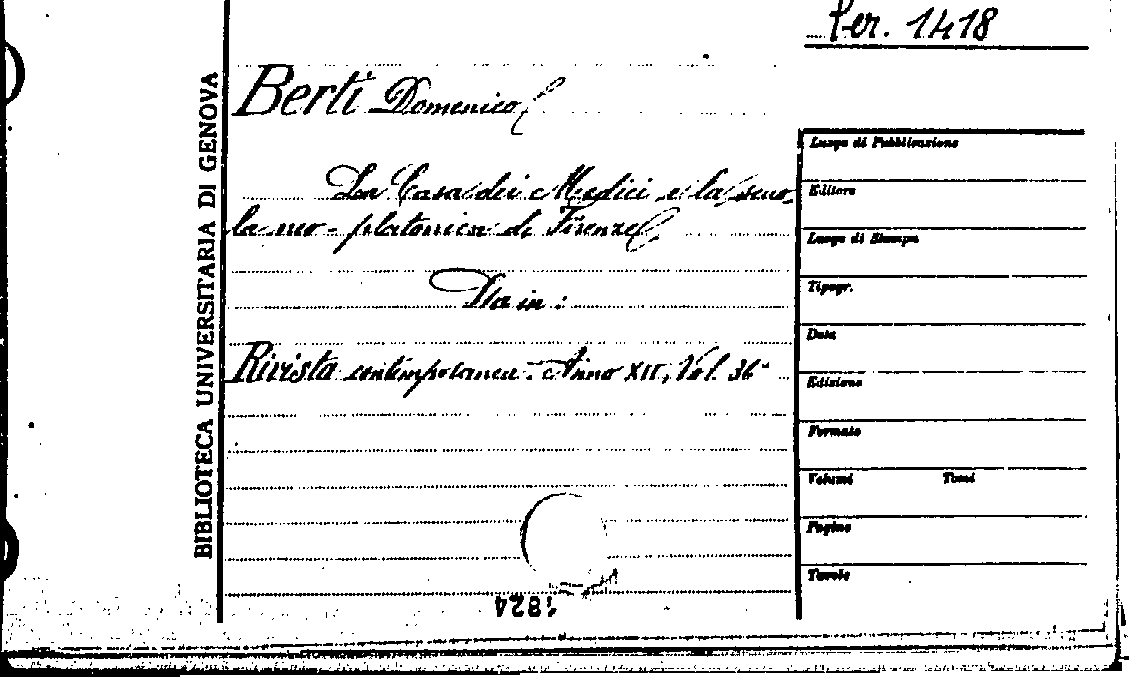 Per. 1418
BIBLIOTECA UNIVERSITARIA DI GENOVA
Berti Domenico
La Casa dei Medici e la scuo-
la neo-platonica di Firenze
Sta in:
Rivista contemporanea. Anno XII, Vol. 36°
Luogo di Pubblicazione
Editore
Luogo di Stampa
Tipogr.
Data
Edizione
Formato
Volumi Tomi
Pagine
Tavole
1824